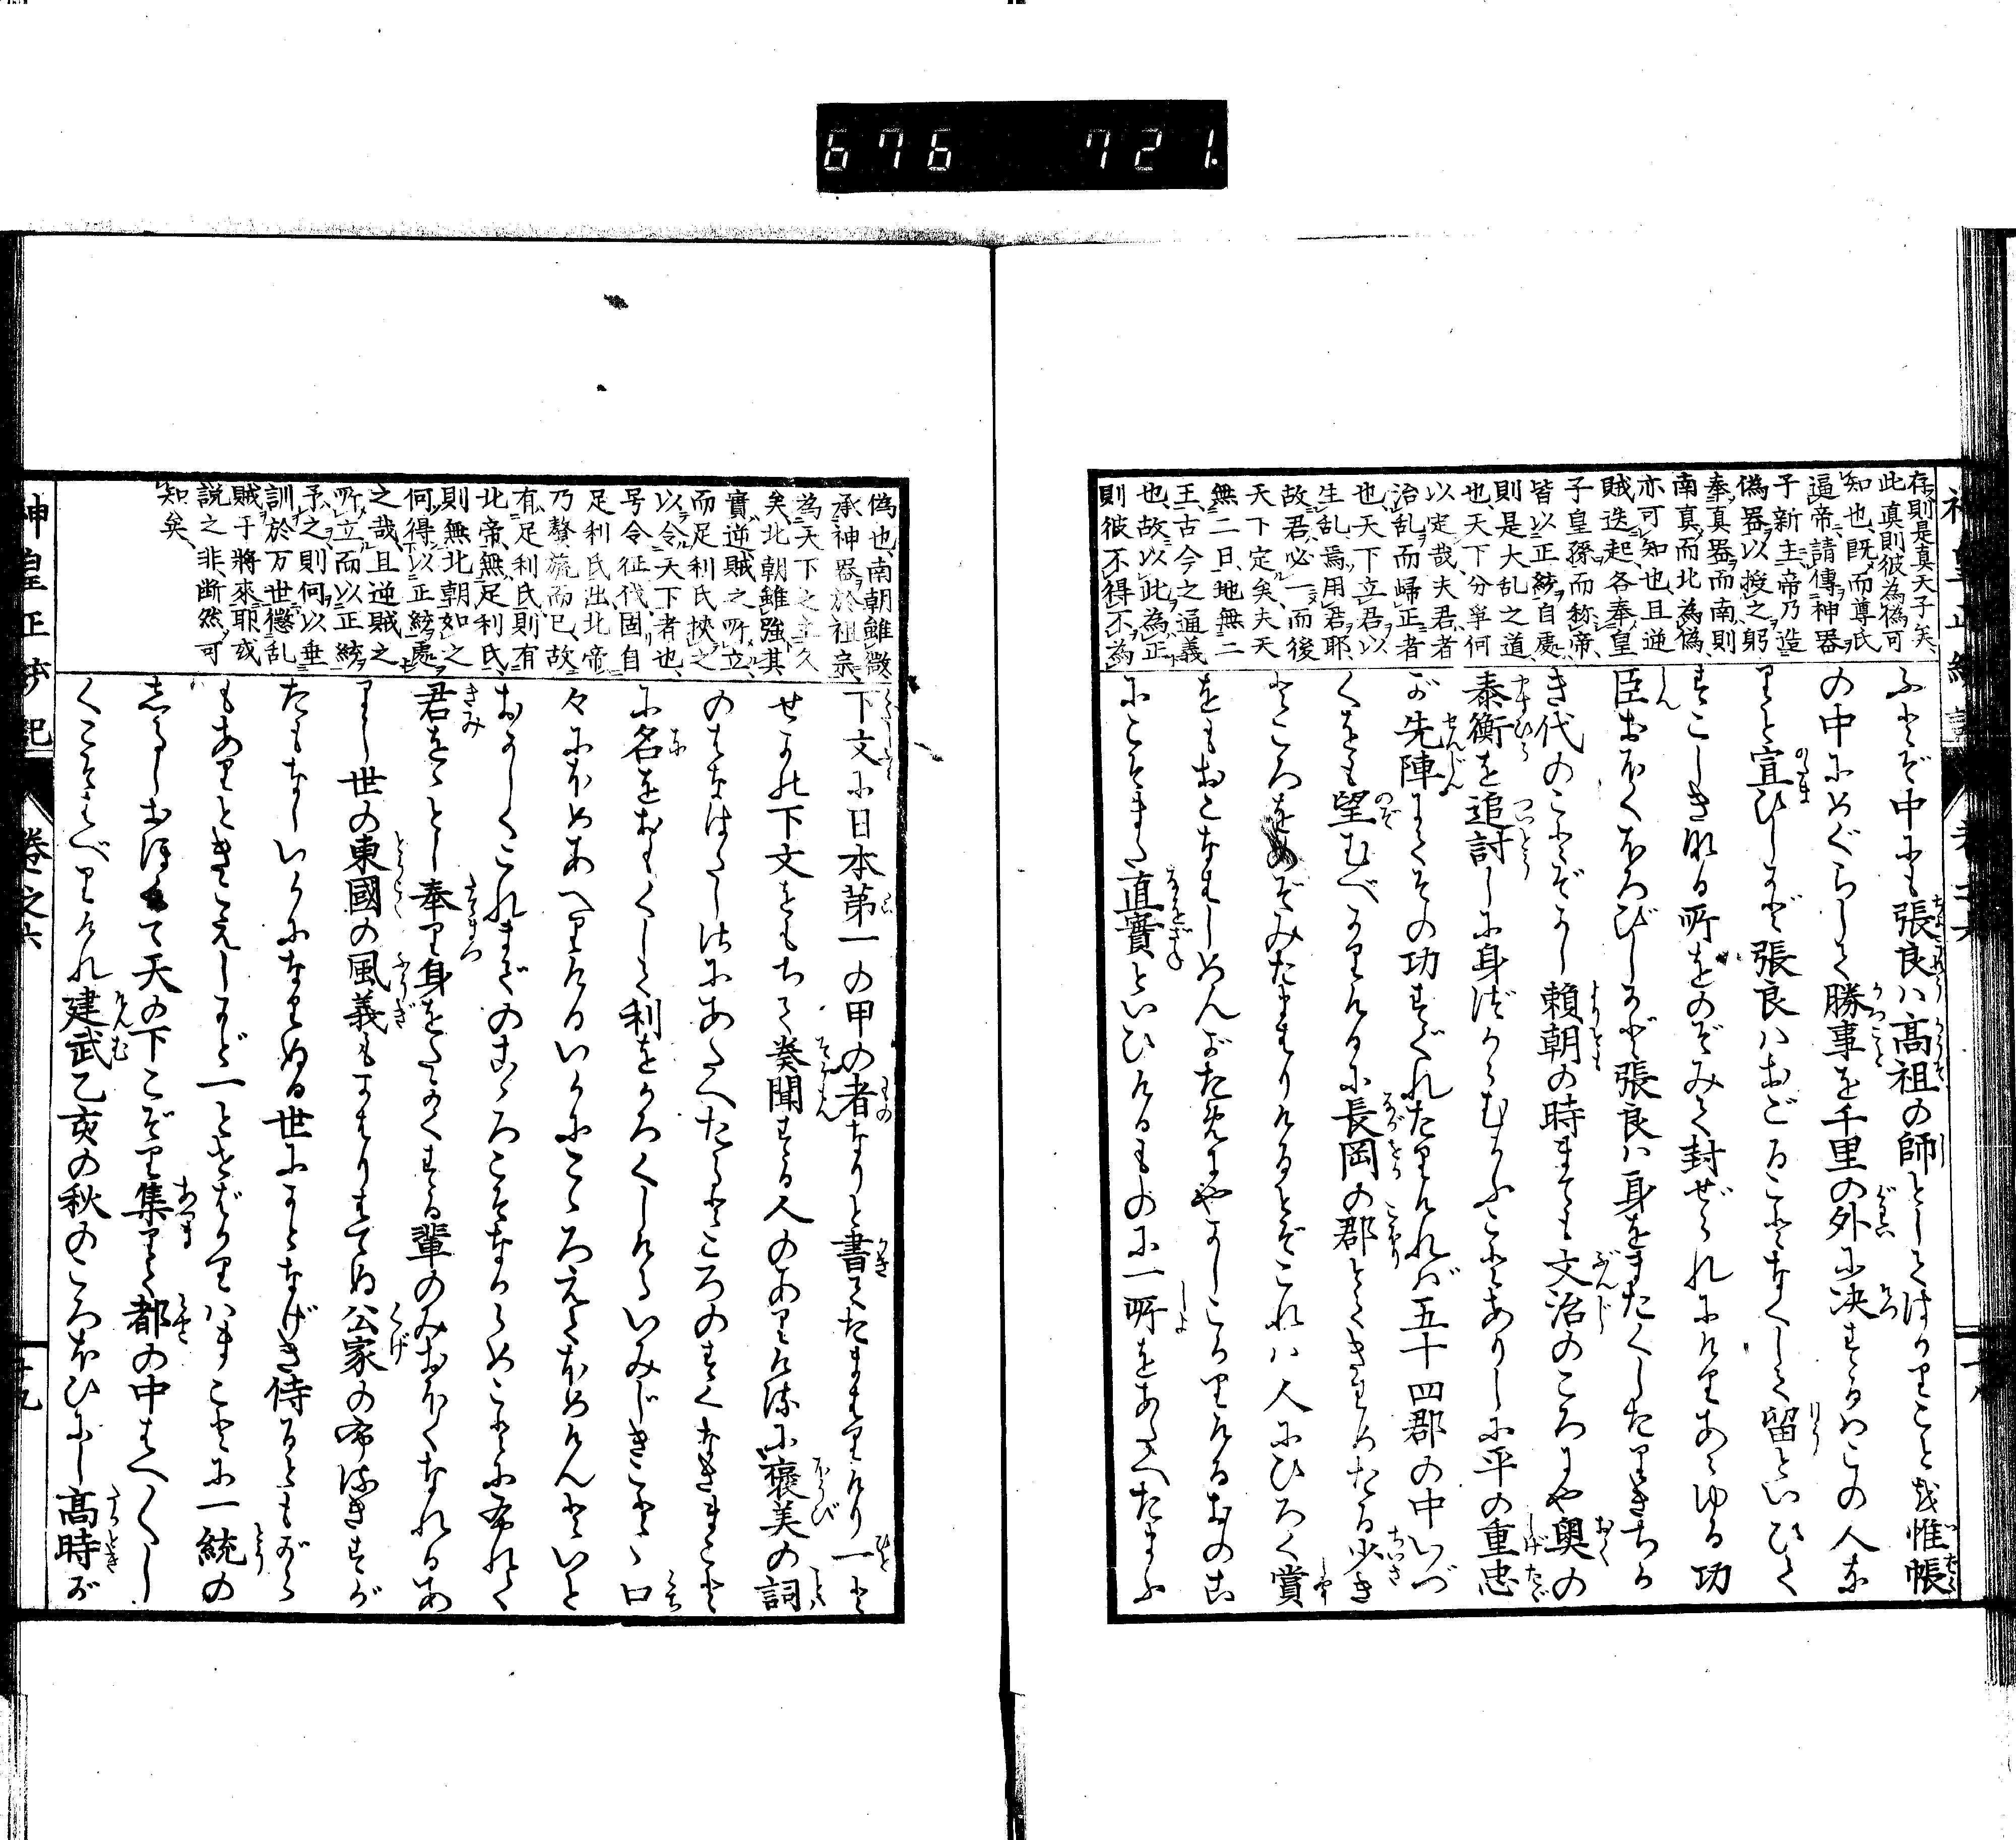 676 721.
存則是真天子矣、
此真則彼為偽可
知也、既而尊氏
逼帝請傳神器
子新主帝乃造
偽器以授之躬
奉真器而南則
南真而北為偽、
亦可知也、且逆
賊迭起各奉皇
子皇孫而称帝、
皆以正統自處、
則是大乱之道
也、天下分争何
以定哉、夫君者
治乱而歸正者
也、天下立君以
生乱焉用君耶、
故君必一而後
天下定矣、夫天
無二日、地無二
王、古今之通義
也、故以此為正
則彼不得不為
ふとぞ中にも張良ハ高祖の師としてはかりことを惟帳
の中にめぐらして勝事を千里の外に决するはこの人な
りと宣ひしかど張良ハおごることなくして留といひて
すこしきなる所をのぞみて封ぜられにけりあらゆる功
臣おほくほろびしかど張良ハ身をまたくしたりきちか
き代のことぞかし頼朝の時までも文治のころにや奥の
泰衡を追討しに身づからむかふことありしに平の重忠
が先陣にてその功すぐれたりければ五十四郡の中いづ
くをも望むべかりけるに長岡の郡とてきわめたる少き
ところをのぞみたまはりけるとぞこれハ人にひろく賞
をもおこなはしめんがためにやかしこかりけるおのこ
にこそまた直實といひけるものに一所をあたへたまふ
偽也、南朝雖微
承神器於祖宗、
為天下之主久
矣、北朝雖強其
實逆賊之所立、
而足利氏挾之
以令天下者也、
号令征伐固自
足利氏出北帝
乃贅旒而已、故
有足利氏則有
北帝無足利氏
則無北朝如之
何得以正統處
之哉、且逆賊之
所立而以正統
予之則何以垂
訓於万世懲乱
賊于將來耶或
説之非断然可
知矣、
下文に日本第一の甲の者なりと書てたまはりけり一と
せかの下文をもちて奏聞する人のありけるに褒美の詞
のはなはたしきにあたへたるところのすくなきまこと
に名をおもくして利をかろくしけるいみじきことゝ口
々にほめあへりけるいかにこゝろえてほめけんといと
おかしくこれまでのこゝろこそなからめことにふれて
君をおとし奉り身をたかくする輩のみおほくなれるあ
りし世の東國の風義もかはりはてぬ公家のふるきすが
たもなしいかになりぬる世にかとなげき侍るともがら
もありときこえしかど一とせばかりハまことに一統の
志るしおほえて天の下こぞり集りて都の中はへ〳〵し
くこそはべりけれ建武乙亥の秋のころほひにし高時が
神皇正統記 卷之六 十九